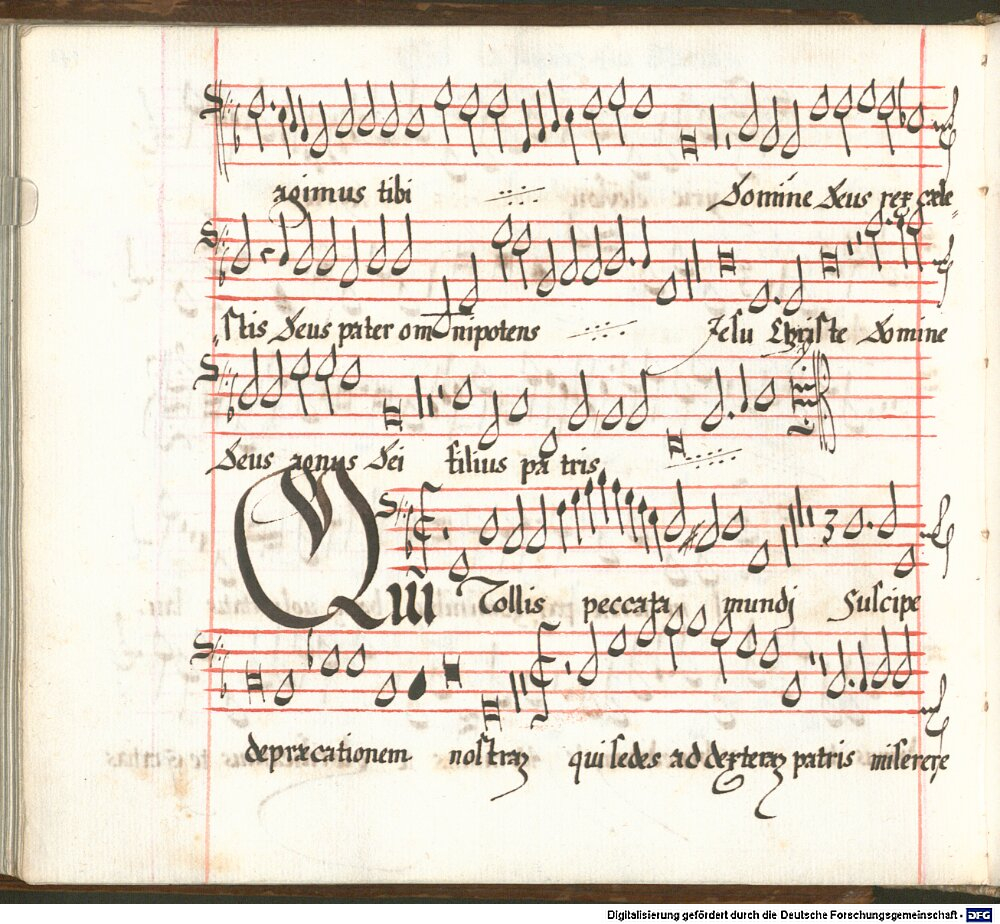 agimus tibi Domine Deus rex cæle-
stis Deus pater omnipotens Jesu Christe Domine
Deus agnus Dei filius patris
Qui Tollis peccata mundi Suscipe
depræcationem nostram qui sedes ad dexteram patris miserere
Digitalisierung gefördert durch die Deutsche Forschungsgemeinschaft - DFG